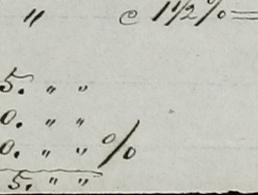 " c 1 1/2 % =
5. " "
0. " "
0. " " %
5. " "